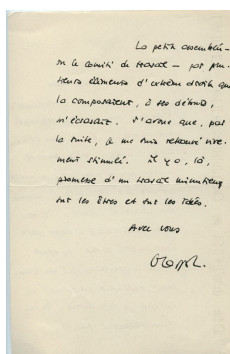 La petite assemblée –
ou le comité de travail – par plu-
sieurs éléments d'extrême droite qui
la composaient, à ses débuts,
m'écrasait. J'avoue que, par
la suite, je me suis retrouvé vive-
ment stimulé. Il y a, là,
promesse d'un travail minutieux
sur les êtres et sur les idées.
Avec vous